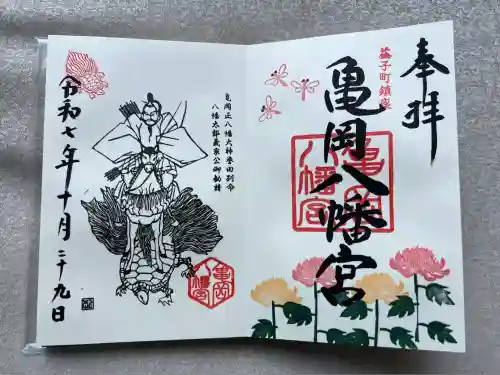 奉拝
益子町鎮座
亀岡八幡宮
亀岡
八幡宮
亀岡正八幡大神誉田別命
八幡太郎義家公御勧請
亀岡
八幡宮
令和七年十月二十九日